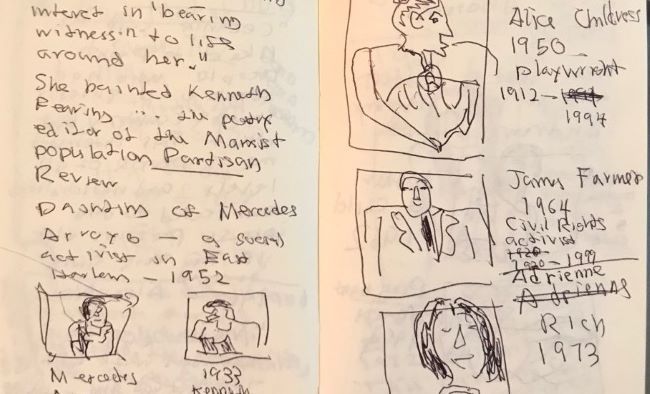 interest in "bearing
witness" to life
around her."
She painted Kenneth
Fearing ... the poetry
editor of the Marxist
population Partisan
Review
Painting of Mercedes
Arroyo — a social
activist in East
Harlem — 1952
Mercedes
1933
Kenneth
Alice Childress
1950
playwright
1912 —
1994
James Farmer
1964
Civil Rights
activist
1920 — 1999
Adrienne
Rich
1973